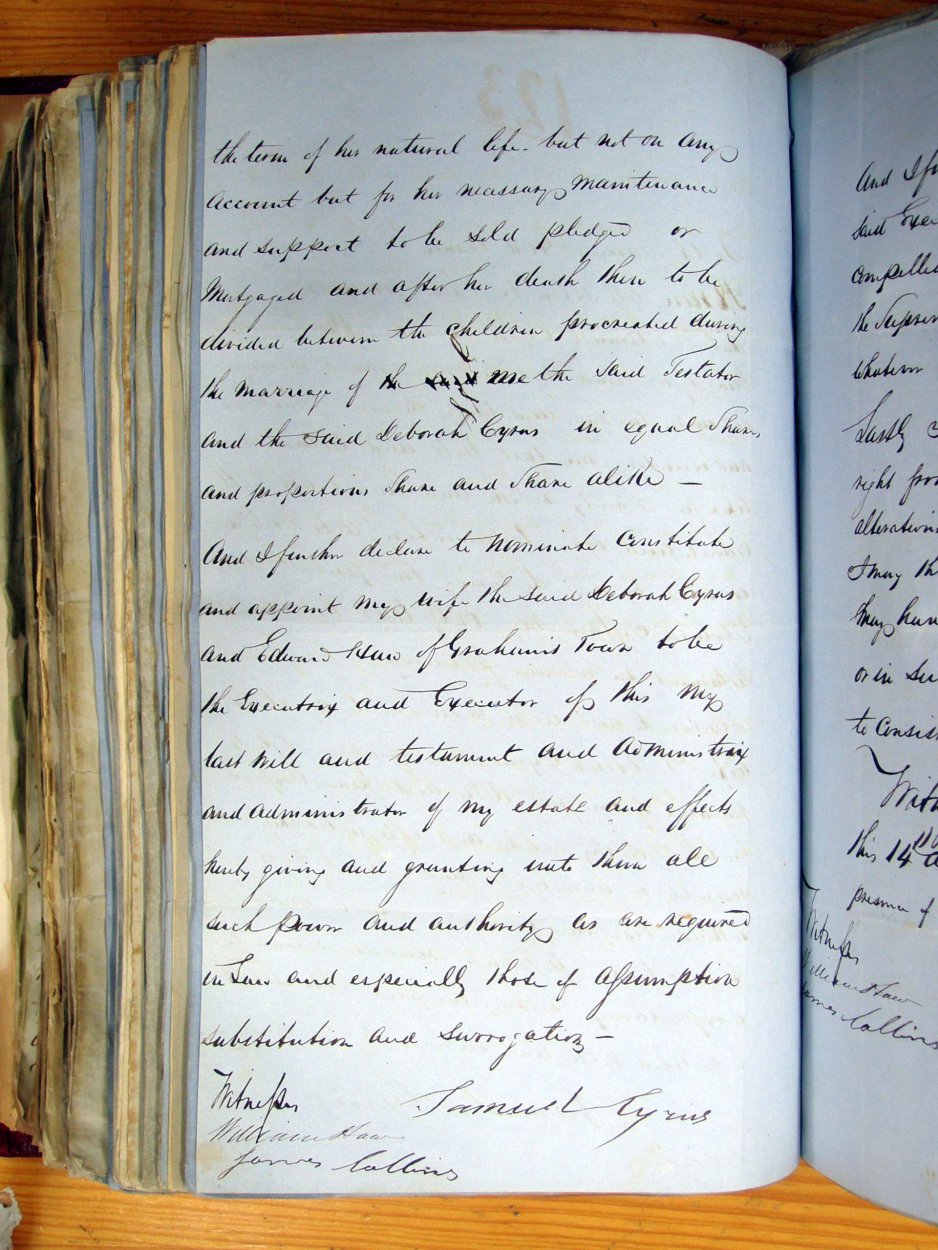 the term of her natural life. but not on any
account but for her necessary maintenance
and support to be sold pledged or
Mortgaged and after her death then to be
divided between the children procreated during
the marriage of the me the said Testator
and the said Deborah Cyrus in equal Shares
and proportions Share and Share alike —
And I further declare to nominate constitute
and appoint my wife the said Deborah Cyrus
and Edward Haw of Graham's Town to be
the Executrix and Executor of this my
last Will and testament and Administratrix
and administrator of my estate and effects
hereby giving and granting unto them all
such power and authority as are required
in Law and especially those of assumption
substitution and surrogation —
Witnesses
Samuel Cyrus
William Haw
James Collins
And I fu
said Exec
compelled
the Suprem
whatever
Lastly
right fro
alteration
I may th
may have
or in
to consis
Witn
this 14th
presence of
Witness
William Haw
James Collins